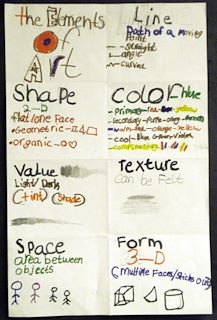 the Elements
Of
Art
Line
Path of a Moving
Point
- straight
- angle
- curved
Shape
2-D
flat/one Face
• Geometric
• organic
COLOR hue
• Primary-red-blue-yellow
• warm-red-orange-yellow
• Cool-Blue Green-Violet
Value
Light/Dark
(tint) (Shade)
Texture
Can be Felt
Space
area between
objects
Form
3-D
multiple Faces/Sticks Out